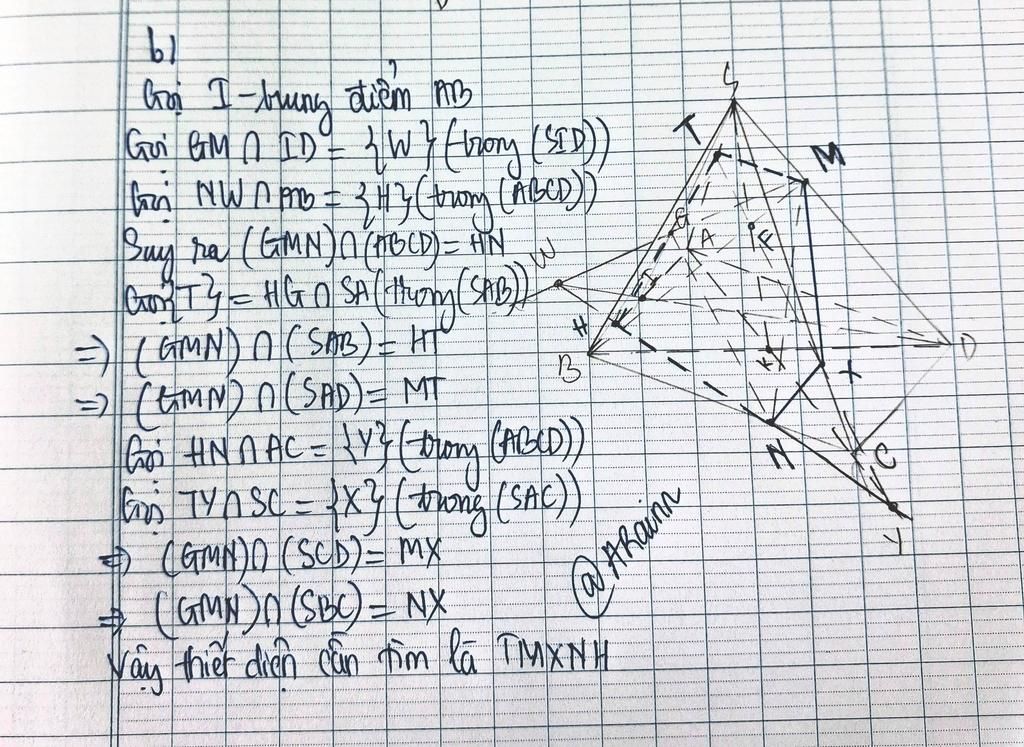 b)
Gọi I-trung điểm AB
Gọi GM ∩ ID = {W} (trong (SID))
Gọi NW ∩ AB = {H} (trong (ABCD))
Suy ra (GMN) ∩ (ABCD) = HN
Gọi {T} = HG ∩ SA (trong (SAB))
=> (GMN) ∩ (SAB) = HT
=> (GMN) ∩ (SAD) = MT
Gọi HN ∩ AC = {Y} (trong (ABCD))
Gọi TY ∩ SC = {X} (trong (SAC))
=> (GMN) ∩ (SCD) = MX
=> (GMN) ∩ (SBC) = NX
Vậy thiết diện cần tìm là TMXNH
@ARainn
S
T
M
G
A
W
I
H
B
D
X
N
C
Y